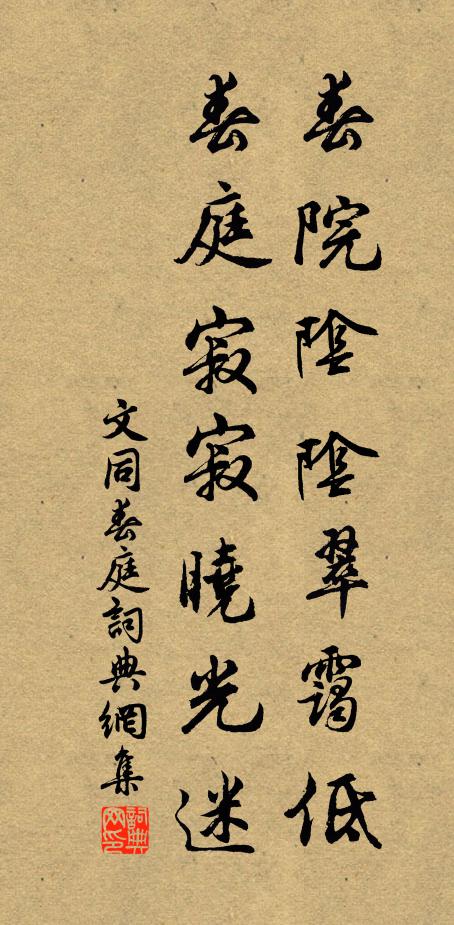 春院陰陰翠靄低
春庭寂寂曉光迷
文同春庭詞典網集
詞典網印